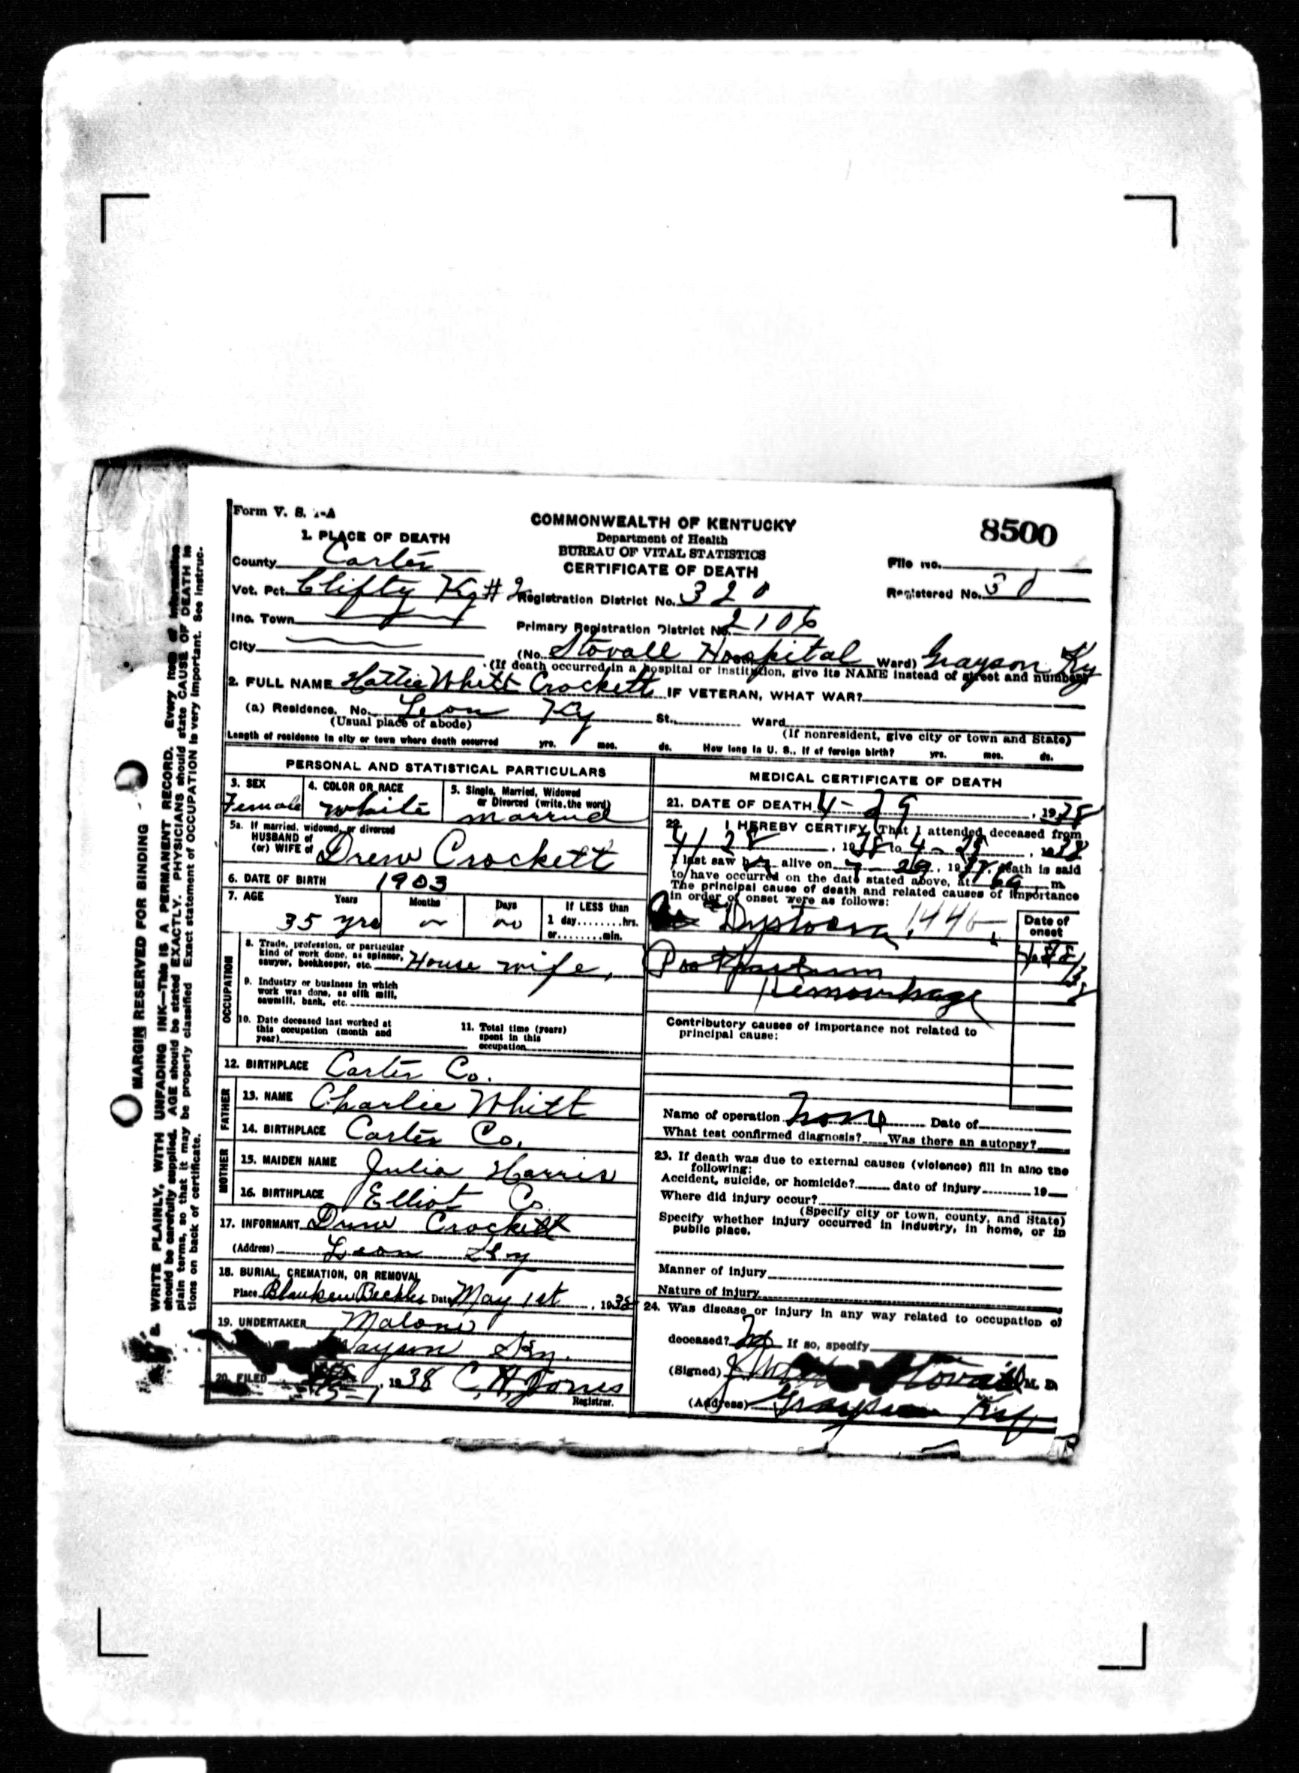 Form V. S. 1-A
COMMONWEALTH OF KENTUCKY
Department of Health
BUREAU OF VITAL STATISTICS
CERTIFICATE OF DEATH
8500
File no.
Registered No. 30
1. PLACE OF DEATH
County Carter
Vot. Pct. Clifty Ky # 2 Registration District No. 320
Inc. Town
Primary Registration District No. 2106
City
(No. Stovall Hospital Ward) Grayson Ky
(If death occurred in a hospital or institution, give its NAME instead of street and number)
2. FULL NAME Hattie Whitt Crockett IF VETERAN, WHAT WAR?
(a) Residence. No. Leon Ky St., Ward
(Usual place of abode) (If nonresident, give city or town and State)
Length of residence in city or town where death occurred yrs. mos. ds. How long in U. S., if of foreign birth? yrs. mos. ds.
PERSONAL AND STATISTICAL PARTICULARS
3. SEX Female
4. COLOR OR RACE white
5. Single, Married, Widowed or Divorced (write the word) married
5a. If married, widowed, or divorced
HUSBAND of
(or) WIFE of Drew Crockett
6. DATE OF BIRTH 1903
7. AGE Years Months Days If LESS than
35 yrs 1 day........hrs.
or........min.
OCCUPATION
8. Trade, profession, or particular
kind of work done, as spinner,
sawyer, bookkeeper, etc. House wife,
9. Industry or business in which
work was done, as silk mill,
sawmill, bank, etc.
10. Date deceased last worked at
this occupation (month and
year)
11. Total time (years)
spent in this
occupation
12. BIRTHPLACE Carter Co.
FATHER
13. NAME Charlie Whitt
14. BIRTHPLACE Carter Co.
MOTHER
15. MAIDEN NAME Julia Harris
16. BIRTHPLACE Elliot Co
17. INFORMANT Drew Crockett
(Address) Leon Ky
18. BURIAL, CREMATION, OR REMOVAL
Place Date May 1st, 1938
19. UNDERTAKER Malone
Grayson Ky.
20. FILED 1938 C. H. Jones
Registrar.
MEDICAL CERTIFICATE OF DEATH
21. DATE OF DEATH 4-29, 1938
22. I HEREBY CERTIFY, That I attended deceased from
4/28, 1938 to 4-29, 1938
I last saw h alive on 29, 19 death is said
to have occurred on the date stated above, at m.
The principal cause of death and related causes of importance
in order of onset were as follows:
Date of onset
Dystocia
Postpartum
Hemorrhage
Contributory causes of importance not related to
principal cause:
Name of operation None Date of
What test confirmed diagnosis? Was there an autopsy?
23. If death was due to external causes (violence) fill in also the
following:
Accident, suicide, or homicide? date of injury 19
Where did injury occur?
(Specify city or town, county, and State)
Specify whether injury occurred in industry, in home, or in
public place.
Manner of injury
Nature of injury
24. Was disease or injury in any way related to occupation of
deceased? No If so, specify
(Signed) Stovall M. D.
(Address) Grayson Ky
MARGIN RESERVED FOR BINDING
WRITE PLAINLY, WITH UNFADING INK—THIS IS A PERMANENT RECORD. Every item of information
should be carefully supplied. AGE should be stated EXACTLY. PHYSICIANS should state CAUSE OF DEATH in
plain terms, so that it may be properly classified. Exact statement of OCCUPATION is very important. See instruc-
tions on back of certificate.